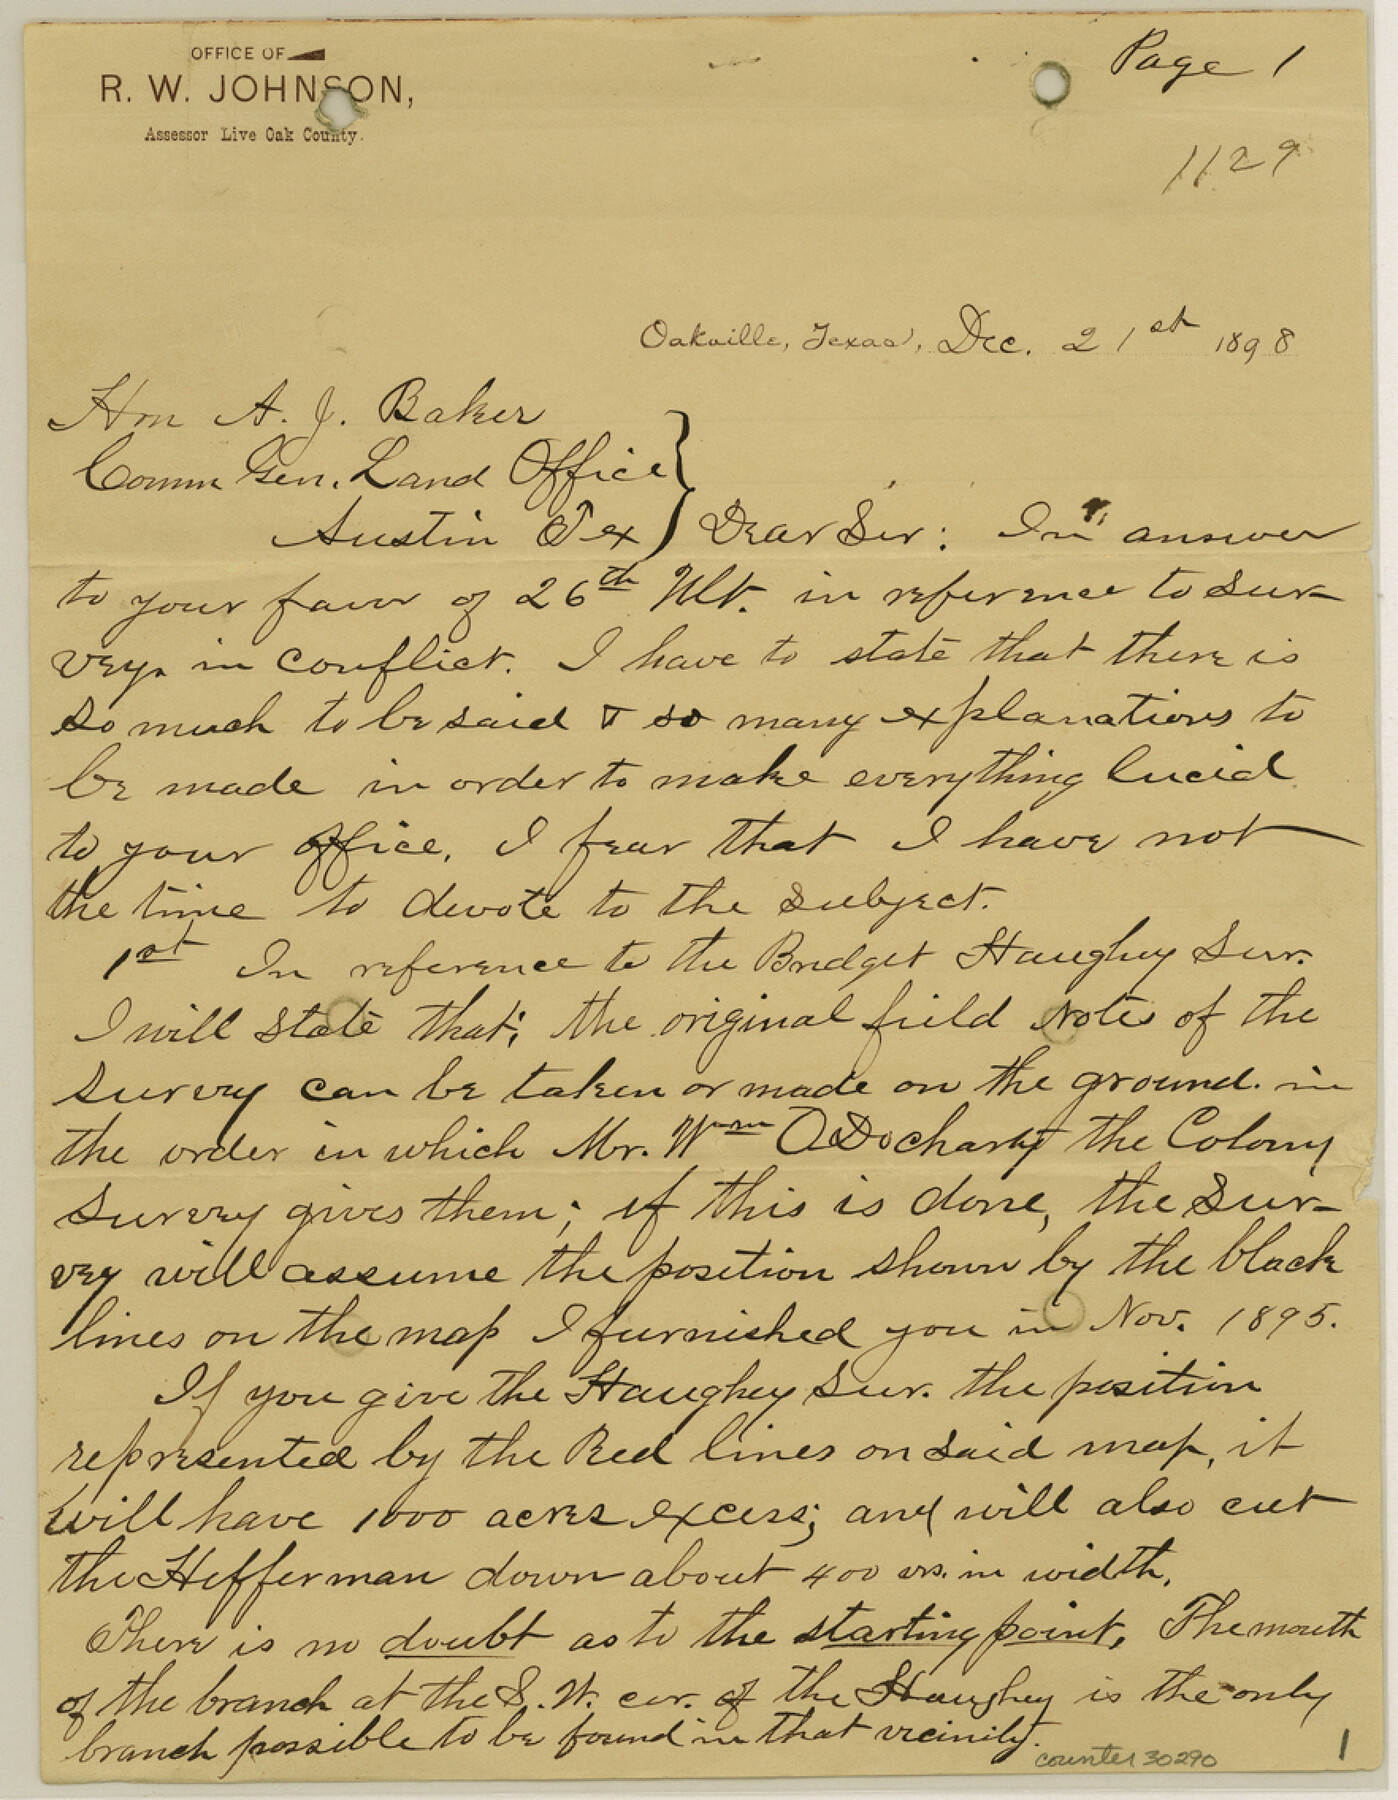 OFFICE OF
R. W. JOHNSON,
Assessor Live Oak County.
Page 1
1129
Oakville, Texas, Dec. 21st 1898
Hon A. J. Baker
Comm Gen. Land Office
Austin Tex } Dear Sir: In answer
to your favor of 26th Ult. in reference to sur-
veys in conflict. I have to state that there is
so much to be said & so many explanations to
be made in order to make everything lucid
to your office, I fear that I have not
the time to devote to the subject.
1st In reference to the Bridget Haughey Sur.
I will state that; the original field notes of the
survey can be taken or made on the ground. in
the order in which Mr. Wm ODocharty the Colony
survey gives them; if this is done, the sur-
vey will assume the position shown by the black
lines on the map I furnished you in Nov. 1895.
If you give the Haughey Sur. the position
represented by the Red lines on said map, it
will have 1000 acres excess; and will also cut
the Hefferman down about 400 vrs. in width.
There is no doubt as to the starting point. The mouth
of the branch at the S. W. cor. of the Haughey is the only
branch possible to be found in that vicinity.
counter 30290
1